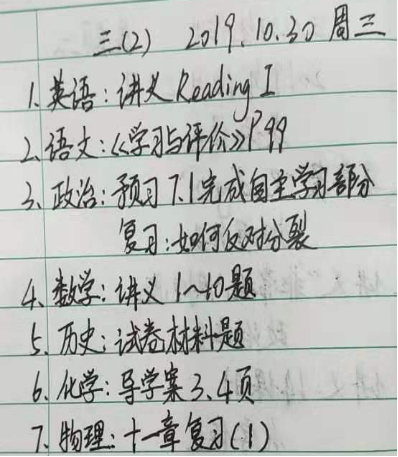 三(2) 2019.10.30 周三
1. 英语:讲义 Reading I
2. 语文:《学习与评价》P99
3. 政治:预习7.1完成自主学习部分
复习:如何反对分裂
4. 数学:讲义 1~10题
5. 历史:试卷材料题
6. 化学:导学案3.4页
7. 物理:十一章复习(1)